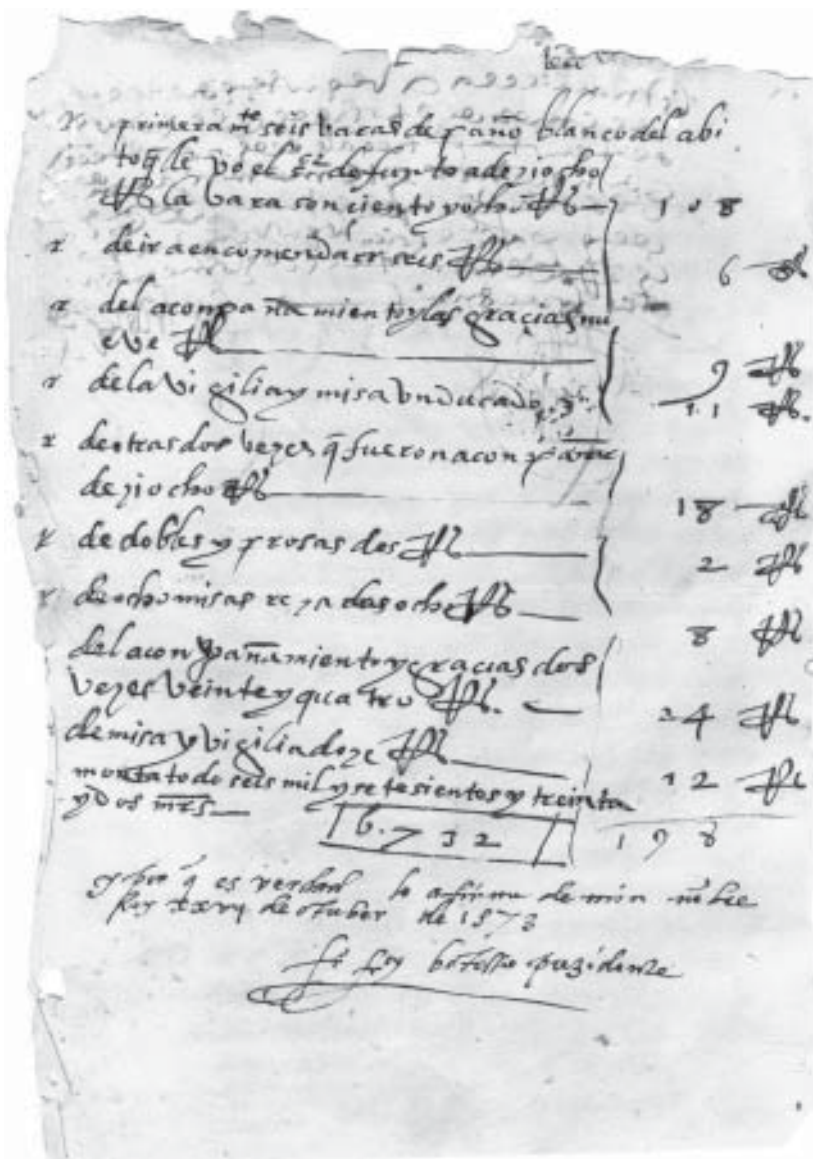 primeramte seis baras de paño blanco del abi
to q̃ lle vo el sr defunto a deziocho
Rs la vara son ciento y ocho Rs 108
r de ir a encomendar seis Rs 6 Rs
r del acompañamiento y las gracias nu
eve Rs 9 Rs
r de la vigilia y misa un ducado 11 Rs.
r de otras dos vezes q̃ fueron a conpañar
deziocho Rs 18 Rs
r de dobles y prosas dos Rs 2 Rs
r de ocho misas rezadas ocho Rs 8 Rs
del aconpañamiento y gracias dos
vezes veinte y quatro Rs. 24 Rs
de misa y vigilia doze Rs 12 Rs
monta todo seis mil y setesientos y treinta
y dos mrs 6.732 198
y por q̃ es verdad lo afirme de min nõbre
de otuber de 1573